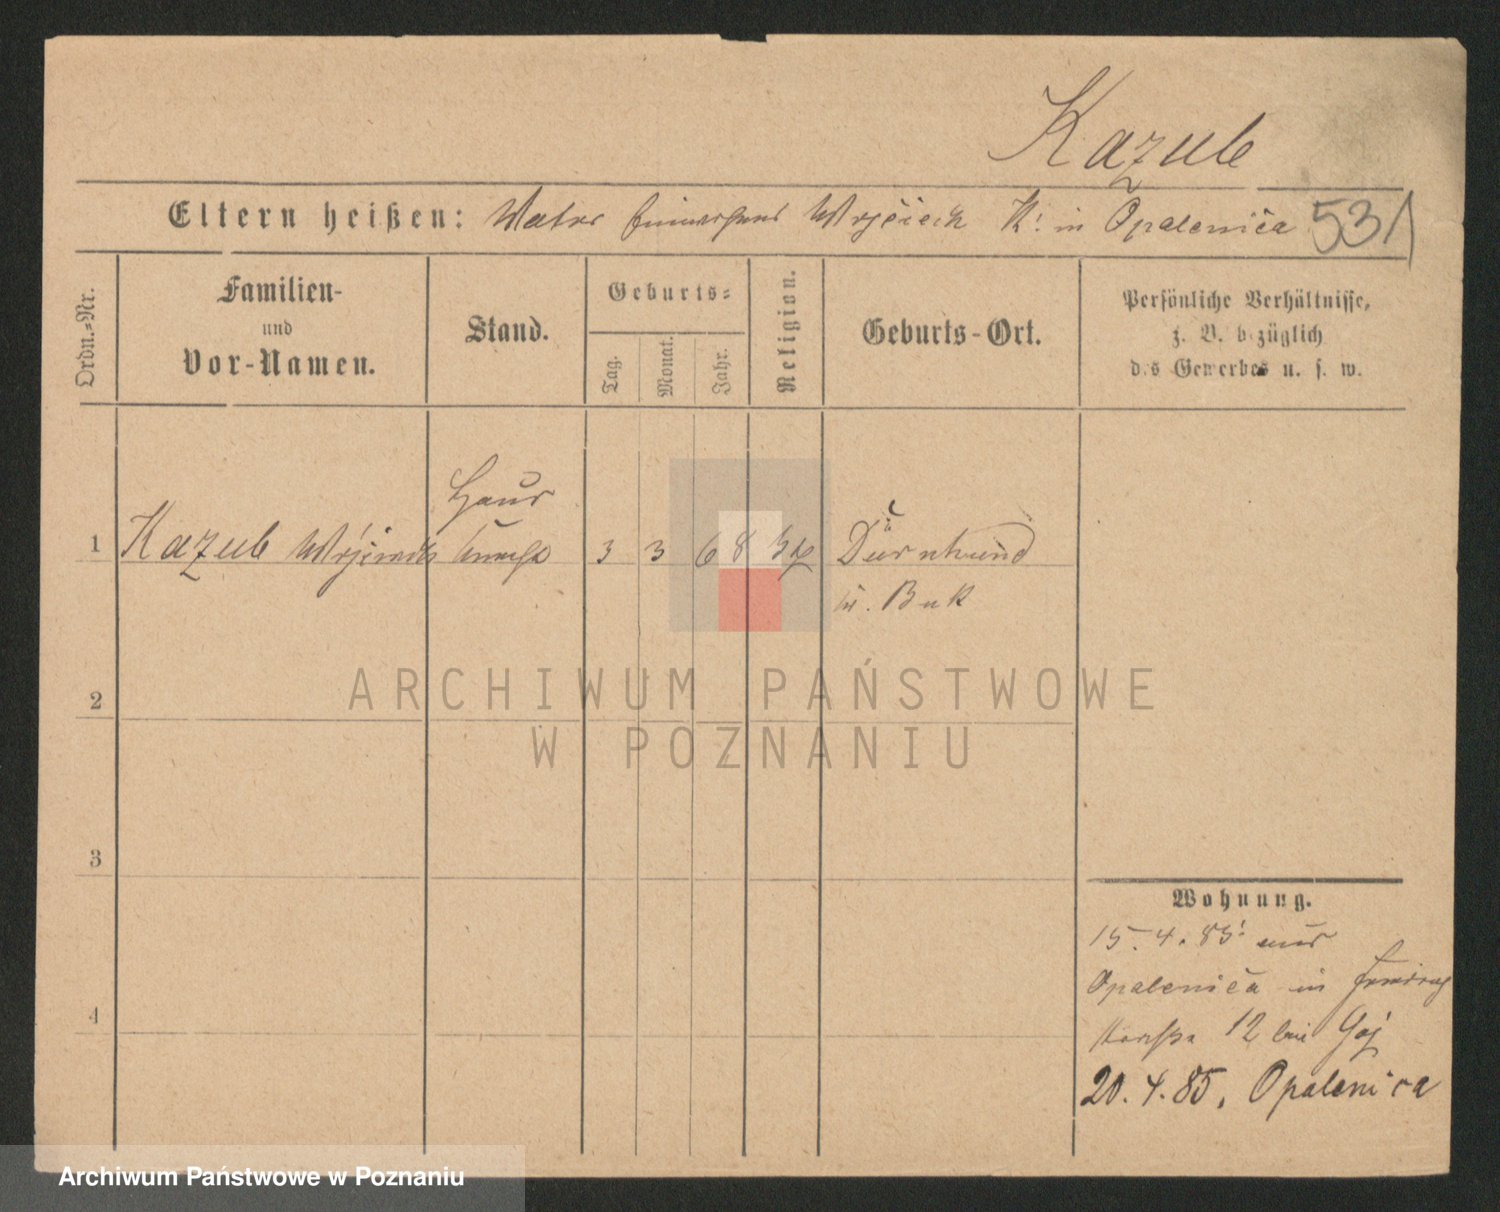 Kazub
Eltern heißen: Vater Wojciech K: in Opalenica 531
Ordn.=Nr.
Familien-
und
Vor-Namen.
Stand.
Geburts=
Tag.
Monat.
Jahr.
Religion.
Geburts-Ort.
Persönliche Verhältnisse,
z. B. bezüglich
des Gewerbes u. s. w.
Haus
1 Kazub 3 3 68 Dürnhund
Buk
ARCHIWUM PAŃSTWOWE
W POZNANIU
2
3
4
Wohnung.
15.4.85: aus
Opalenica in
12 bei Gaj
20.4.85, Opalenica
Archiwum Państwowe w Poznaniu